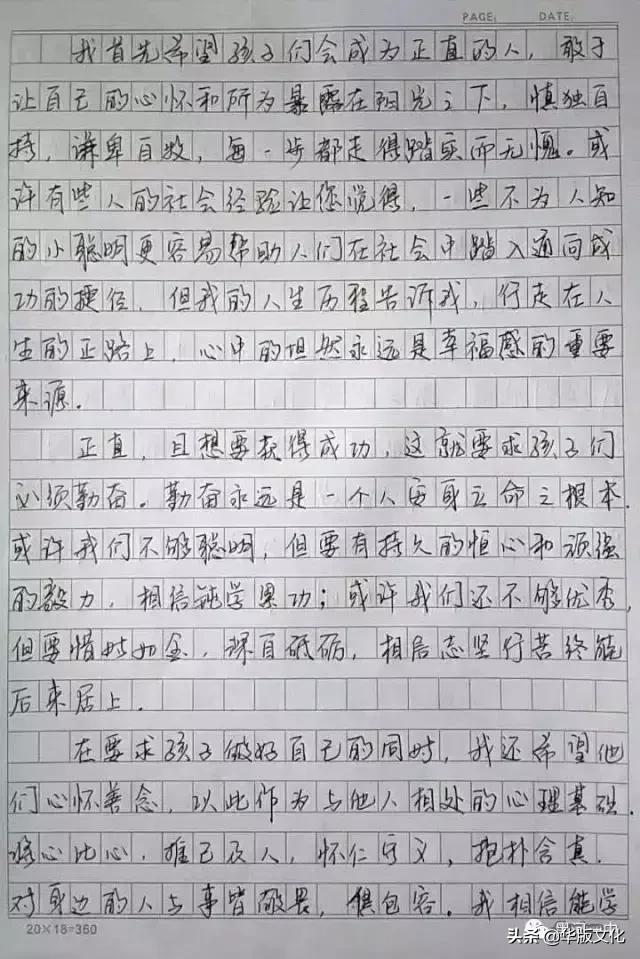 PAGE: DATE:
我首先希望孩子们会成为正直的人，敢于
让自己的心怀和所为暴露在阳光之下，慎独自
持，谦卑自牧，每一步都走得踏实而无愧。或
许有些人的社会经验让你觉得，一些不为人知
的小聪明更容易帮助人们在社会中踏入通向成
功的捷径，但我的人生历程告诉我，行走在人
生的正路上，心中的坦然永远是幸福感的重要
来源。
正直，且想要获得成功，这就要求孩子们
必须勤奋。勤奋永远是一个人安身立命之根本。
或许我们不够聪明，但要有持久的恒心和顽强
的毅力，相信钝学累功；或许我们还不够优秀，
但要惜时如金，深自砥砺，相信志坚行苦终能
后来居上。
在要求孩子做好自己的同时，我还希望他
们心怀善念，以此作为与他人相处的心理基础。
将心比心，推己及人，怀仁守义，抱朴含真。
对身边的人与事皆敬畏，俱包容。我相信能学
20×18=360
头条@华版文化